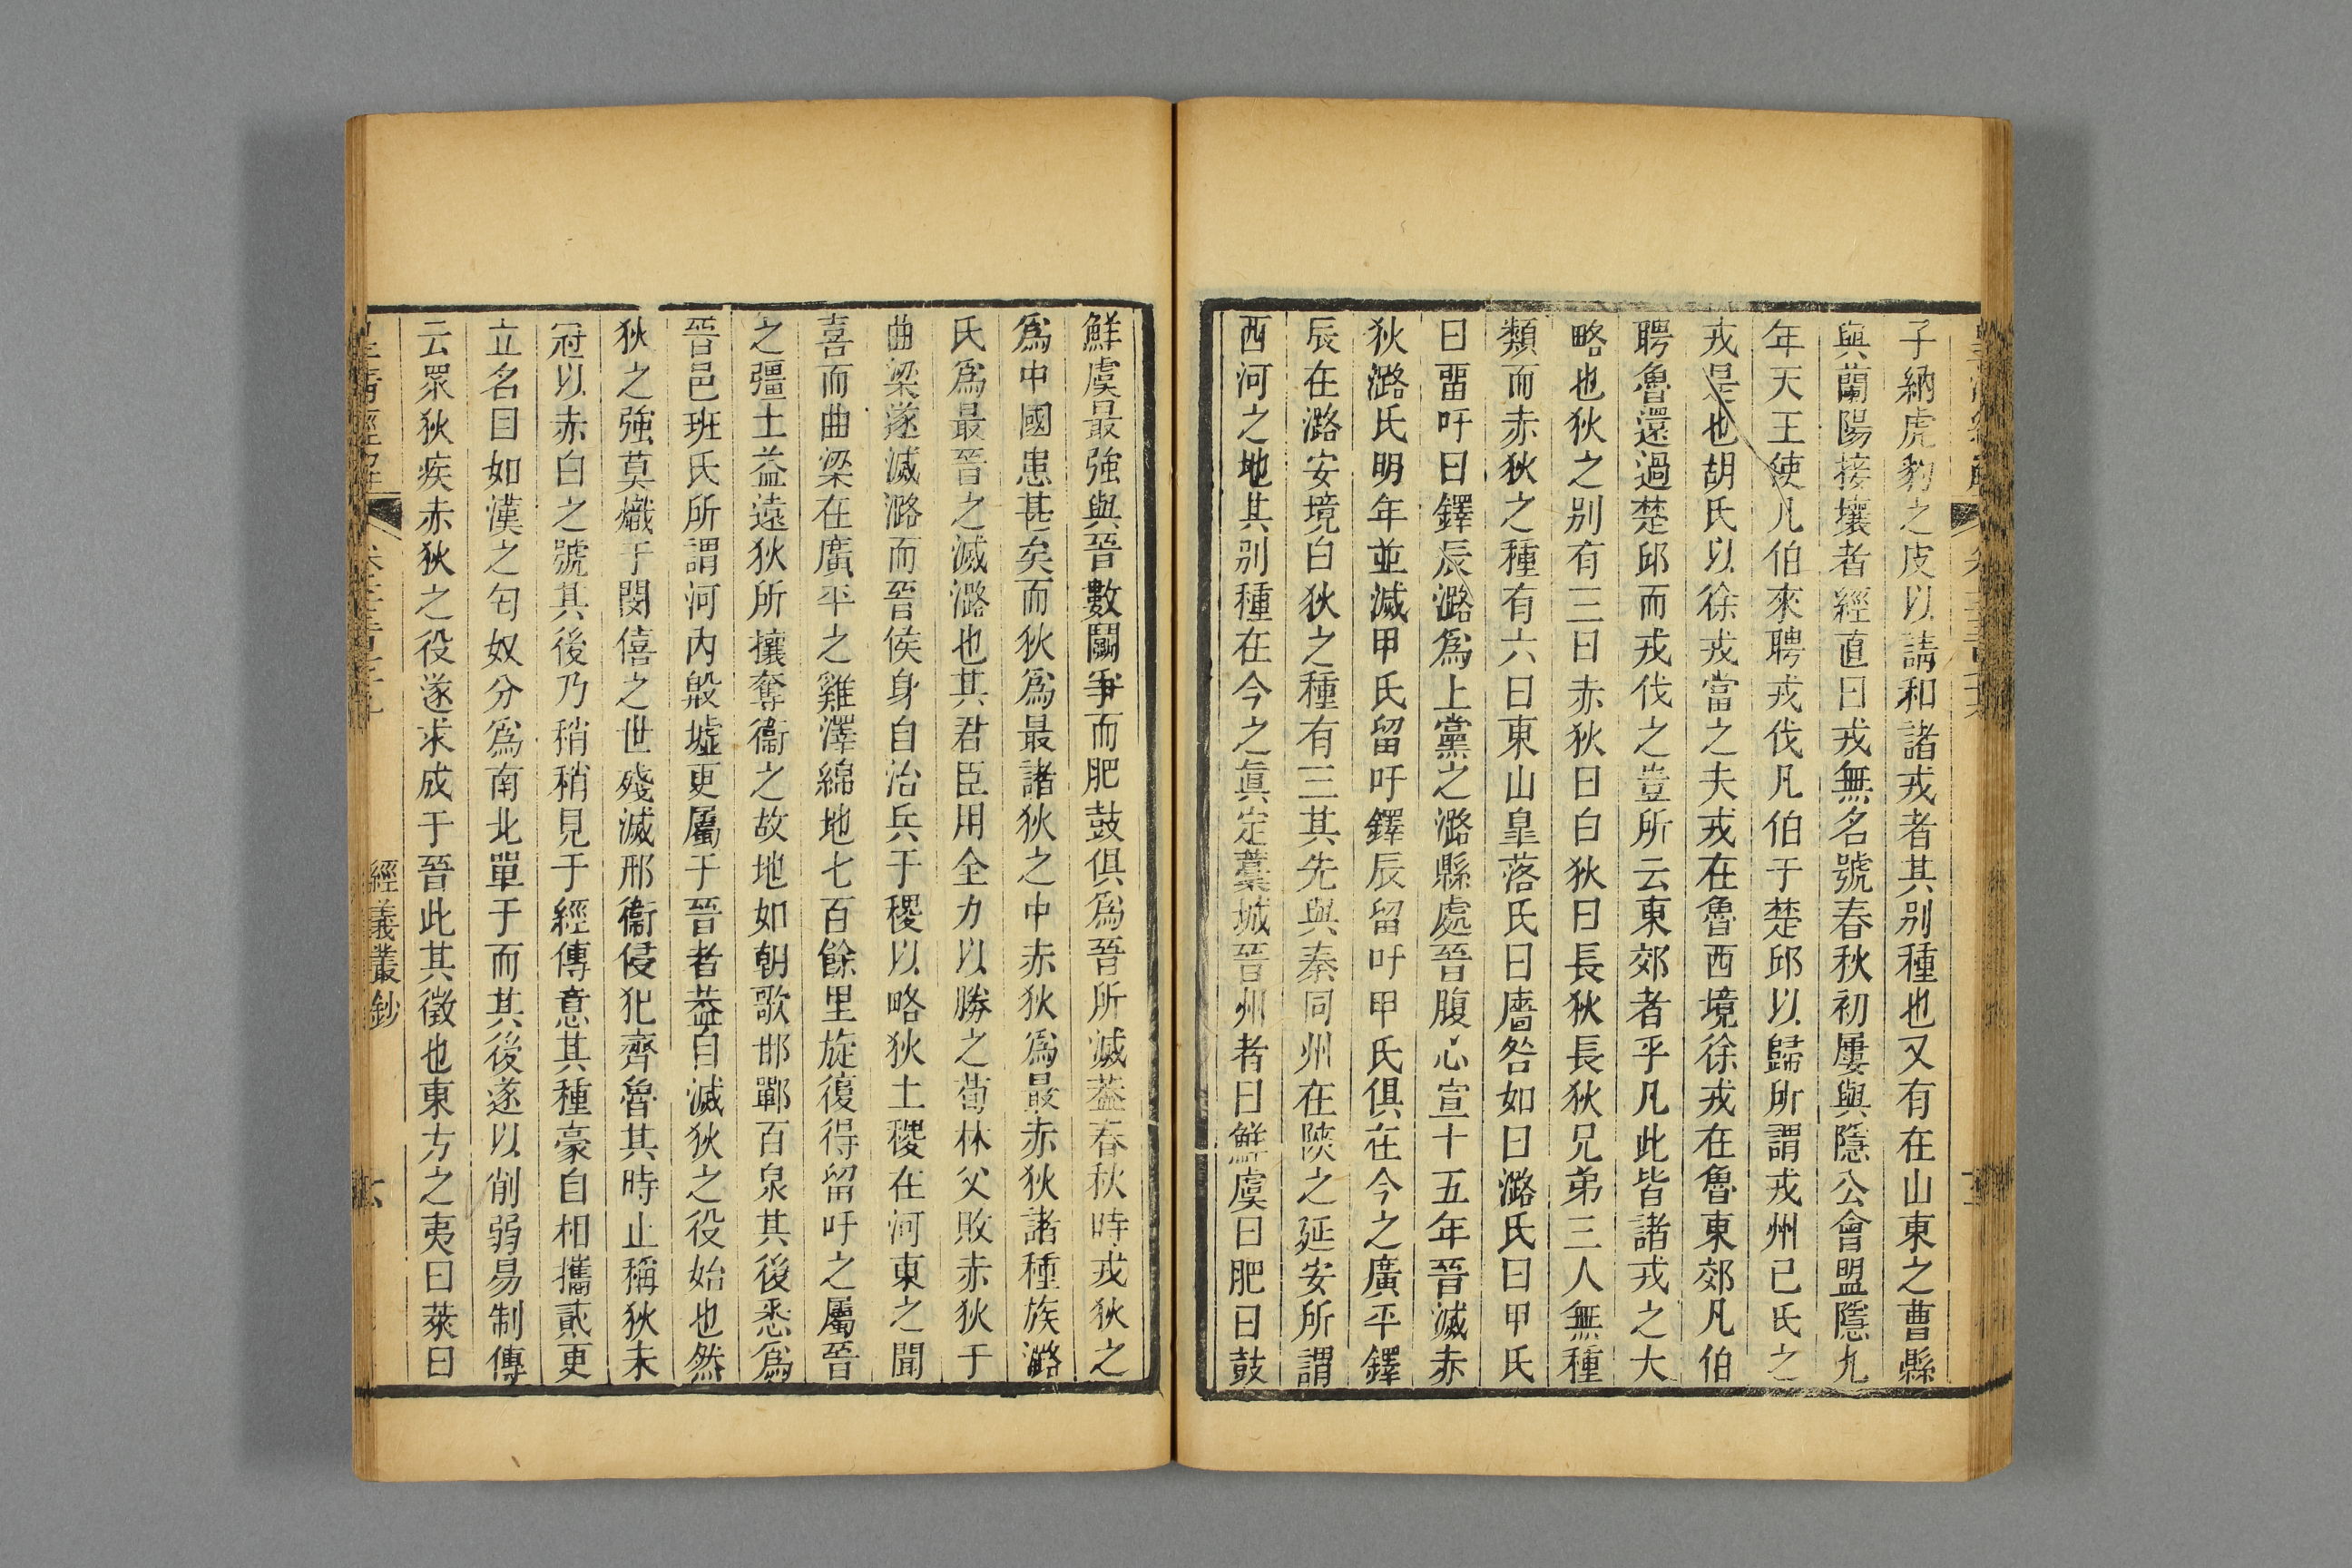 子納虎豹之皮以請和諸戎者其别種也又有在山東之曹縣
與蘭陽接壤者經直曰戎無名號春秋初屢與隱公會盟隱九
年天王使凡伯來聘戎伐凡伯于楚邱以歸所謂戎州已氏之
戎是也胡氏以徐戎當之夫戎在魯西境徐戎在魯東郊凡伯
聘魯還過楚邱而戎伐之豈所云東郊者乎凡此皆諸戎之大
略也狄之别有三曰赤狄曰白狄曰長狄長狄兄弟三人無種
類而赤狄之種有六曰東山皐落氏曰廧咎如曰潞氏曰甲氏
曰畱吁曰鐸辰潞爲上黨之潞縣處晉腹心宣十五年晉滅赤
狄潞氏明年並滅甲氏留吁鐸辰留吁甲氏俱在今之廣平鐸
辰在潞安境白狄之種有三其先與秦同州在陝之延安所謂
西河之地其别種在今之眞定藁城晉州者曰鮮虞曰肥曰鼓
鮮虞最強與晉數鬭爭而肥鼓俱爲晉所滅葢春秋時戎狄之
爲中國患甚矣而狄爲最諸狄之中赤狄爲最赤狄諸種族潞
氏爲最晉之滅潞也其君臣用全力以勝之荀林父敗赤狄于
曲梁遂滅潞而晉侯身自治兵于稷以略狄土稷在河東之聞
喜而曲梁在廣平之雞澤綿地七百餘里旋復得留吁之屬晉
之彊土益遠狄所攘奪衞之故地如朝歌邯鄲百泉其後悉爲
晉邑班氏所謂河内殷墟更屬于晉者葢自滅狄之役始也然
狄之強莫熾于閔僖之世殘滅邢衞侵犯齊魯其時止稱狄未
冠以赤白之號其後乃稍稍見于經傳意其種豪自相攜貳更
立名目如漢之匈奴分爲南北單于而其後遂以削弱易制傳
云眾狄疾赤狄之役遂求成于晉此其徵也東方之夷曰萊曰
皇清經解
經義叢鈔